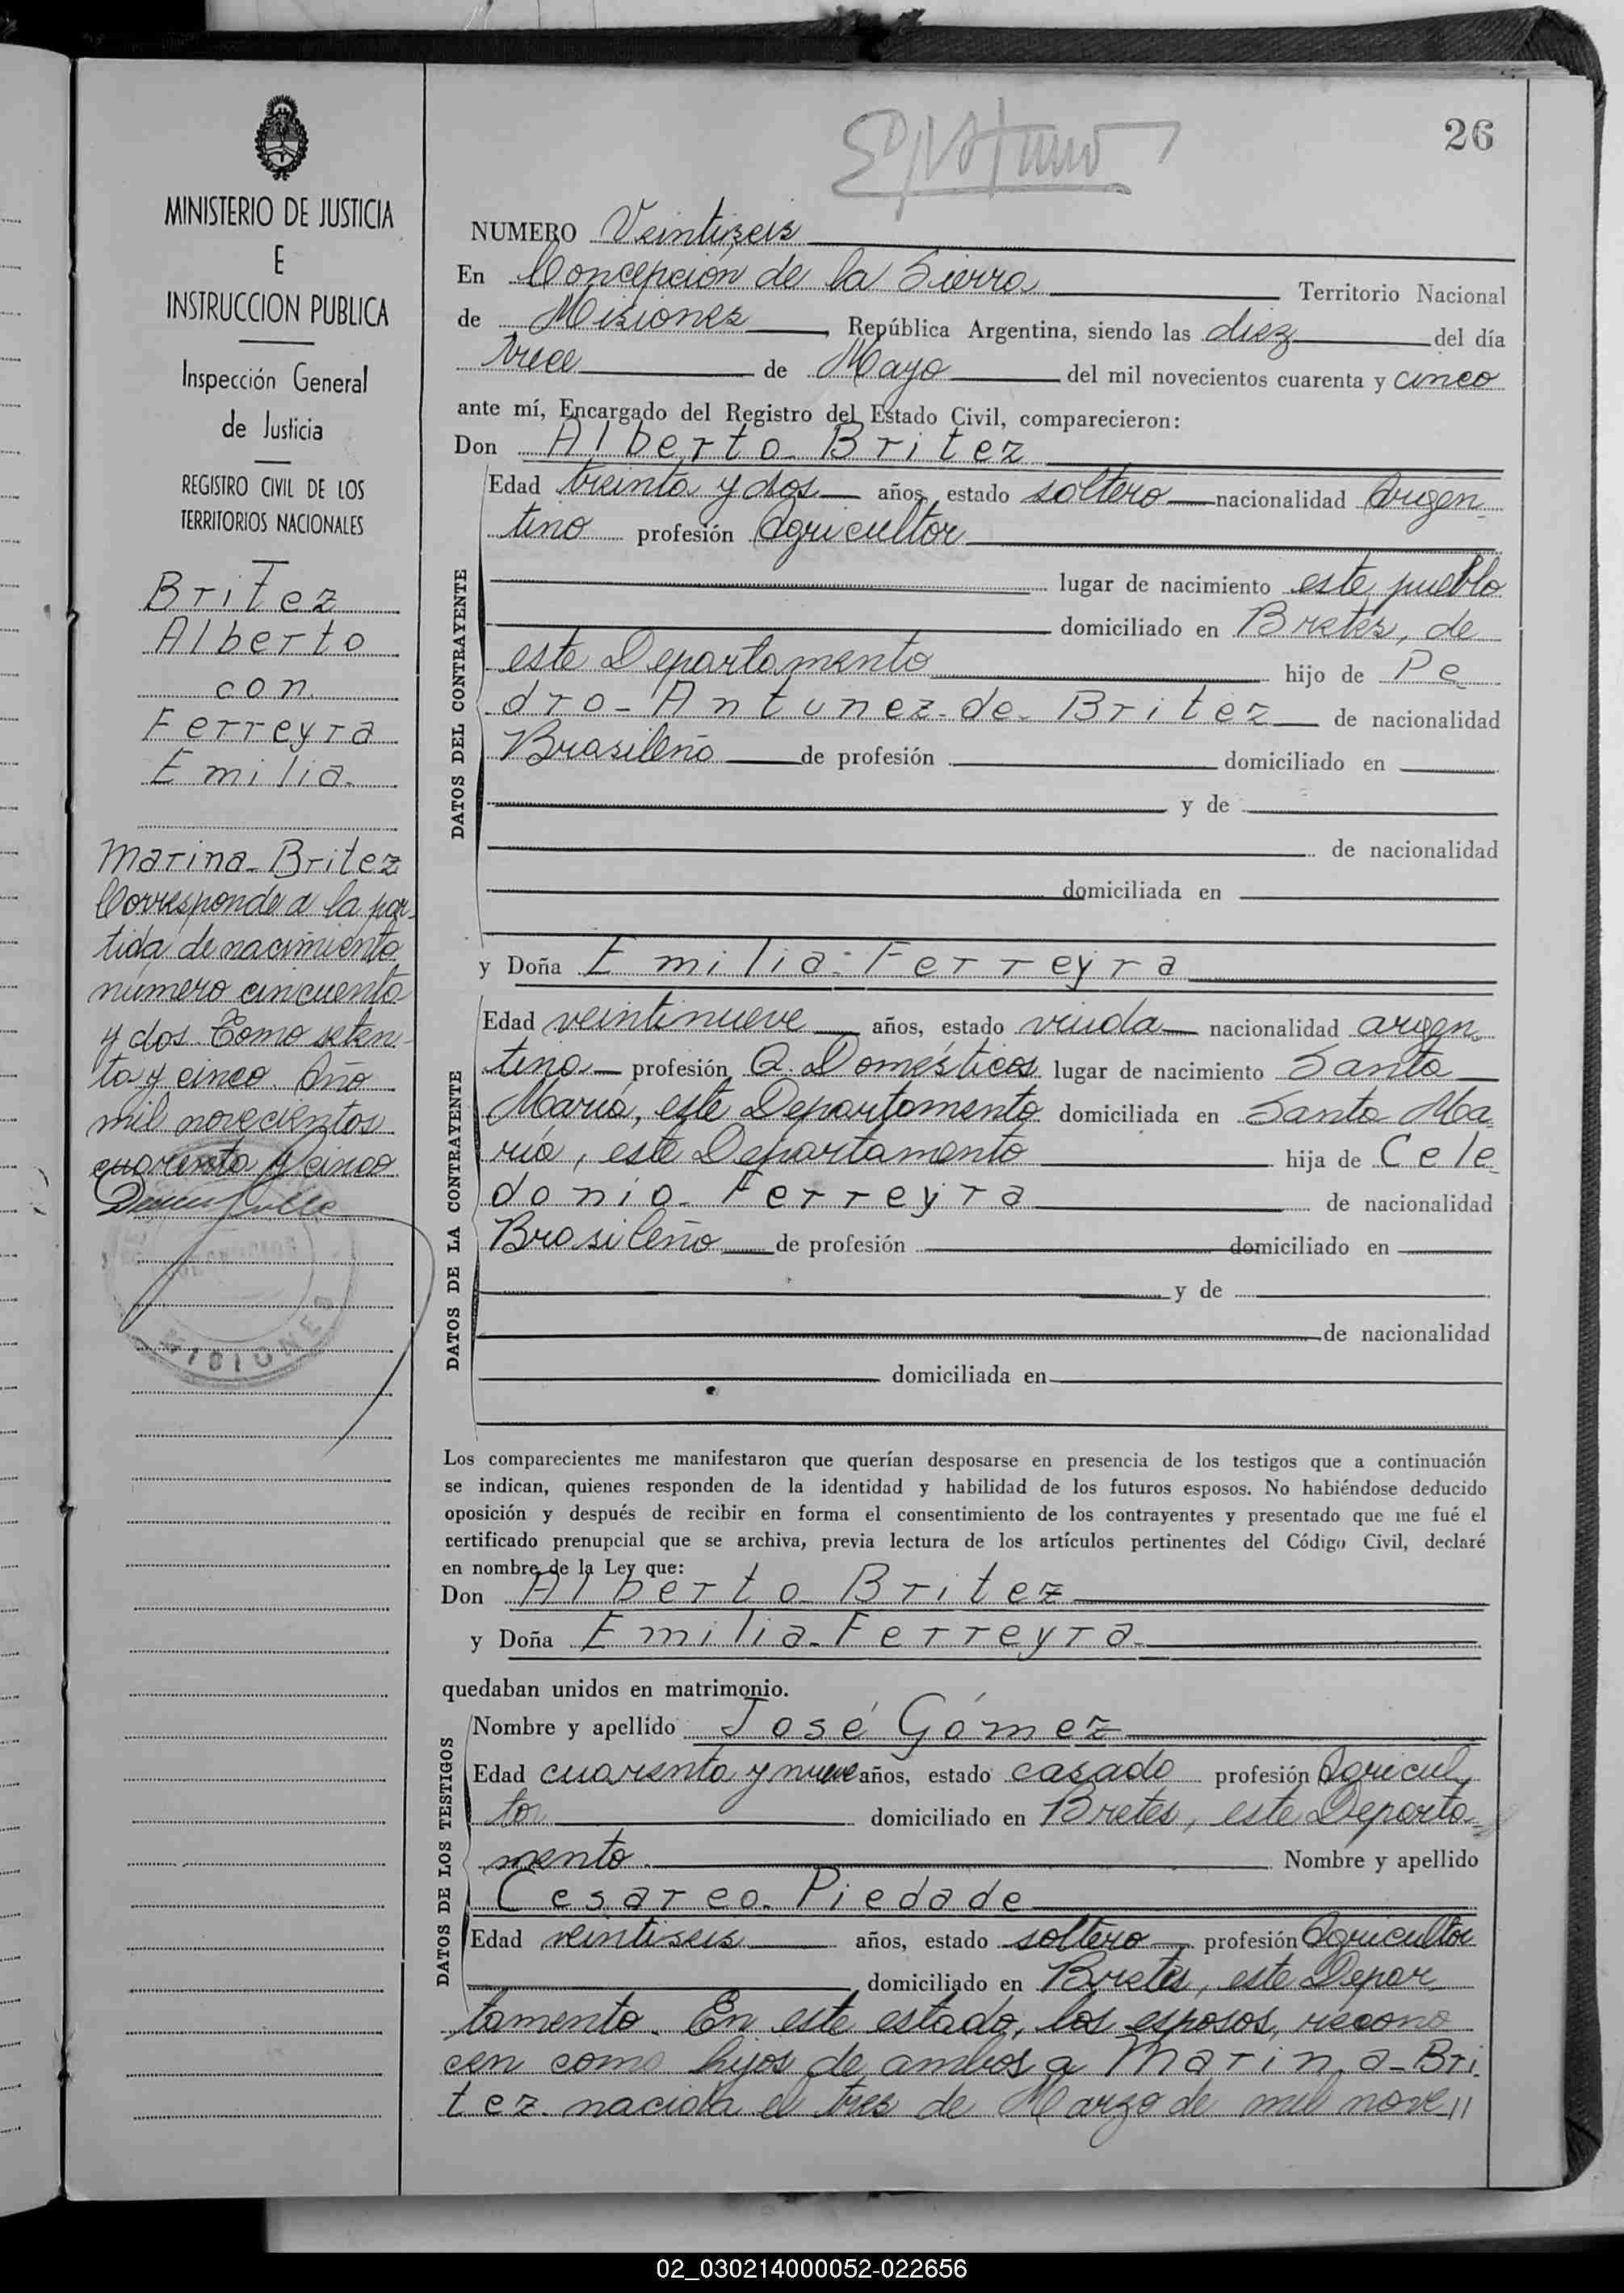 26
MINISTERIO DE JUSTICIA
E
INSTRUCCION PUBLICA
Inspección General
de Justicia
REGISTRO CIVIL DE LOS
TERRITORIOS NACIONALES
Britez
Alberto
con
Ferreyra
Emilia.
Marina-Britez
Corresponde a la par-
tida de nacimiento
número cincuenta
y dos. Tomo seten-
ta y cinco. Año
mil novecientos
cuarenta y cinco
MISIONES
NUMERO Veintiseis
En Concepción de la Sierra Territorio Nacional
de Misiones, República Argentina, siendo las diez del día
trece de Mayo del mil novecientos cuarenta y cinco
ante mí, Encargado del Registro del Estado Civil, comparecieron:
Don Alberto Britez
Edad treinta y dos años, estado soltero nacionalidad Argen-
tino profesión Agricultor
lugar de nacimiento este pueblo
domiciliado en Bretes, de
este Departamento hijo de Pe-
dro-Antunez-de-Britez de nacionalidad
Brasileño de profesión domiciliado en
y de
de nacionalidad
domiciliada en
DATOS DEL CONTRAYENTE
y Doña Emilia-Ferreyra
Edad veintinueve años, estado viuda nacionalidad argen-
tina profesión Q. Domésticos lugar de nacimiento Santa
María, este Departamento domiciliada en Santa Ma-
ría, este Departamento hija de Cele-
donio-Ferreyra de nacionalidad
Brasileño de profesión domiciliado en
y de
de nacionalidad
domiciliada en
DATOS DE LA CONTRAYENTE
Los comparecientes me manifestaron que querían desposarse en presencia de los testigos que a continuación
se indican, quienes responden de la identidad y habilidad de los futuros esposos. No habiéndose deducido
oposición y después de recibir en forma el consentimiento de los contrayentes y presentado que me fué el
certificado prenupcial que se archiva, previa lectura de los artículos pertinentes del Código Civil, declaré
en nombre de la Ley que:
Don Alberto Britez
y Doña Emilia-Ferreyra
quedaban unidos en matrimonio.
Nombre y apellido José Gómez
Edad cuarenta y nueve años, estado casado profesión Agricul-
tor domiciliado en Bretes, este Departa-
mento. Nombre y apellido
Cesareo-Piedade
Edad veintiseis años, estado soltero profesión Agricultor
domiciliado en Bretes, este Depar-
DATOS DE LOS TESTIGOS
tamento. En este estado, los esposos, recono-
cen como hijos de ambos a Marina-Bri-
tez. nacida el tres de Marzo de mil nove//
02_030214000052-022656